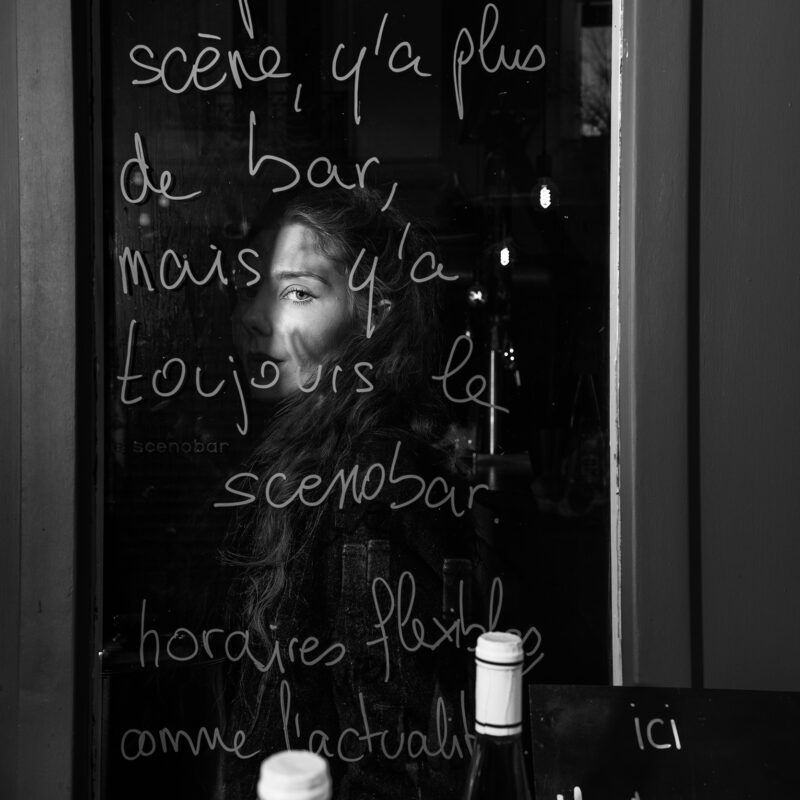 scène, y'a plus
de bar,
mais y'a
toujours le
scenobar
scenobar.
horaires flexibles
comme l'actualit
ici